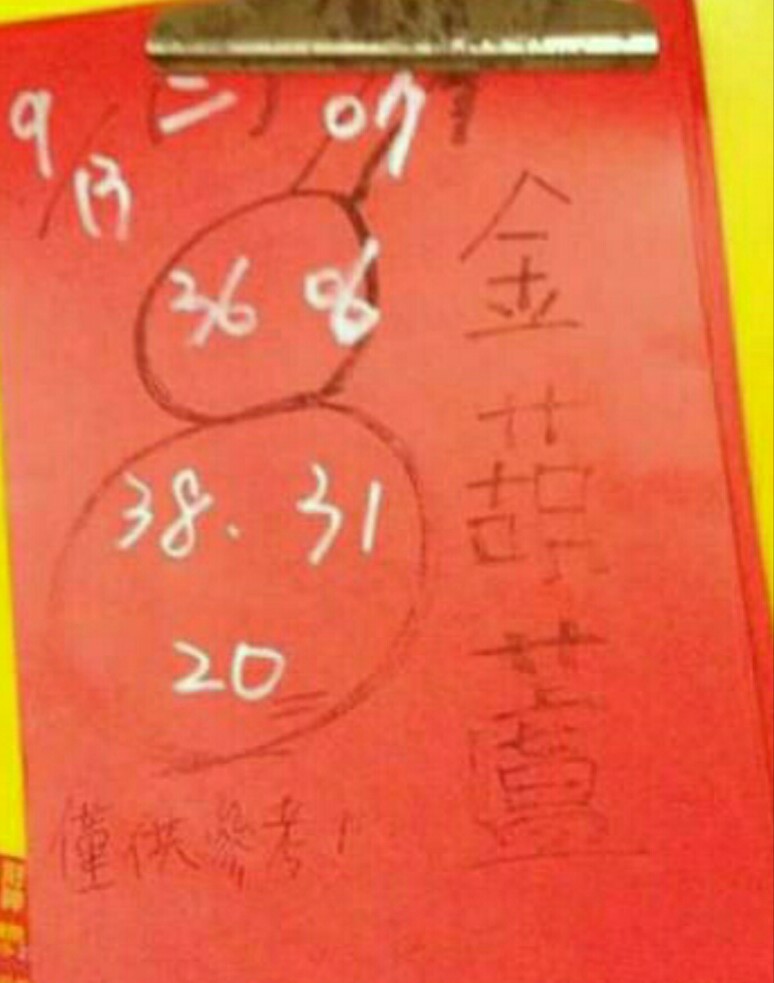 9/13 (二) 07
36 06
38、31
20
金葫蘆
僅供參考！